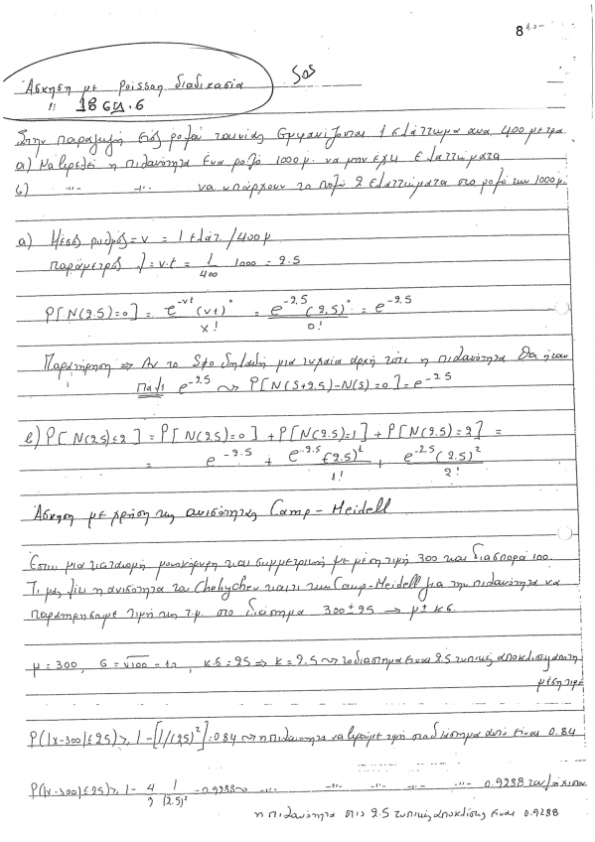 8
Άσκηση με poisson διαδικασία SOS
" 18 σελ. 6
Στην παραγωγή ενός ρολού ταινίας εμφανίζονται 1 ελάττωμα ανα 400 μετρα.
α) Να βρεθεί η πιθανότητα ένα ρολό 1000 μ. να μην έχει ελαττώματα
β) -"- -"- να υπάρχουν το πολύ 2 ελαττώματα στο ρολό των 1000 μ.
α) Μέσος ρυθμός = ν = 1 ελάτ / 400 μ
παράμετρος λ = ν·t = 1/400 1000 = 2.5
P[N(2.5)=0] = e^-νt (νt)^x / x! = e^-2.5 (2.5)^0 / 0! = e^-2.5
Παρατήρηση => Αν το S≠0 δηλαδή μια τυχαία αρχή τότε η πιθανότητα θα ήταν
πάλι e^-2.5 ~> P[N(S+2.5)-N(S)=0] = e^-2.5
β) P[N(2.5)≤2] = P[N(2.5)=0] + P[N(2.5)=1] + P[N(2.5)=2] =
= e^-2.5 + e^-2.5 (2.5)^1 / 1! + e^-2.5 (2.5)^2 / 2!
Άσκηση με χρήση της ανισότητας Camp-Meidell
Εστω μια κατανομή μονοκόρυφη και συμμετρική με μέση τιμή 300 και διασπορά 100.
Τι μας δίνει η ανισότητα του Chebychev και τι των Camp-Meidell για την πιθανότητα να
παρατηρησουμε τιμή της τ.μ. στο διάστημα 300±25 → μ±κσ
μ=300, σ=√100=10, κσ=25 => κ=2.5 ~> το διαστημα ειναι 2.5 τυπικές αποκλίσεις από τη
μέση τιμή
P(|x-300|≤25) ≥ 1-[1/(2.5)^2] = 0.84 ~> η πιθανότητα να βρούμε τιμή στο διάστημα αυτό είναι 0.84
P(|x-300|≤25) ≥ 1 - 4/9 1/(2.5)^2 = 0.9288 ~> -"- -"- -"- -"- 0.9288 τουλάχιστον
η πιθανότητα στις 2.5 τυπικές αποκλίσεις ειναι 0.9288